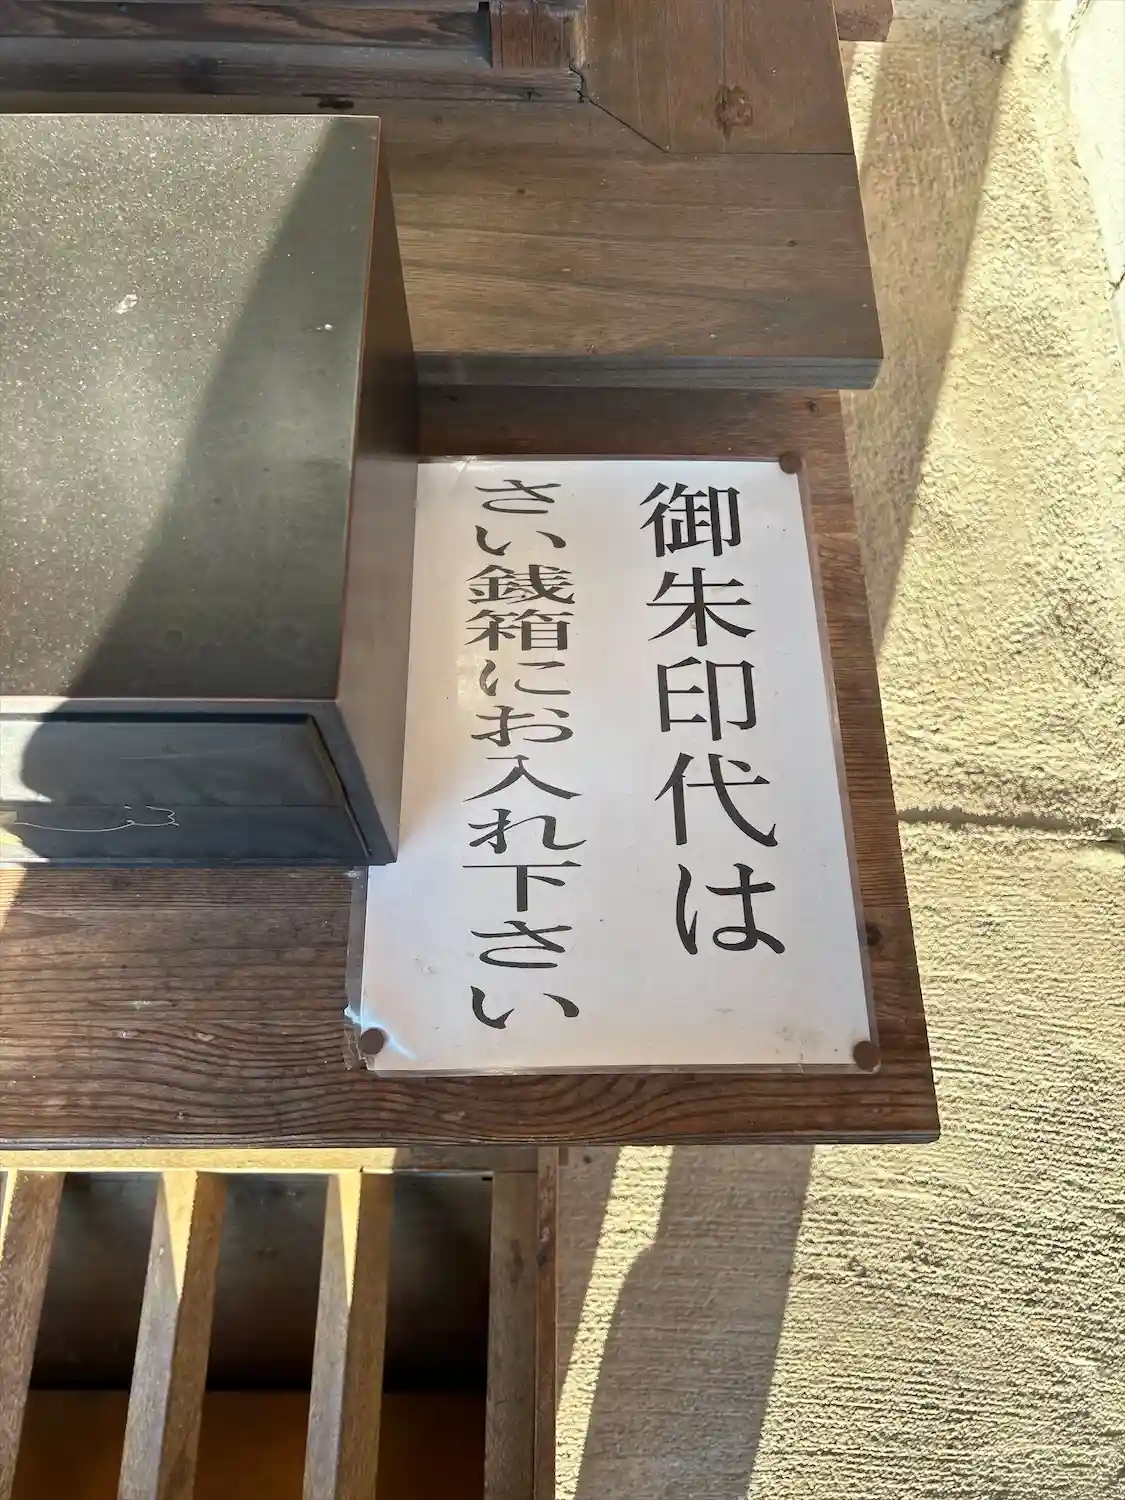 御朱印代は
さい銭箱にお入れ下さい